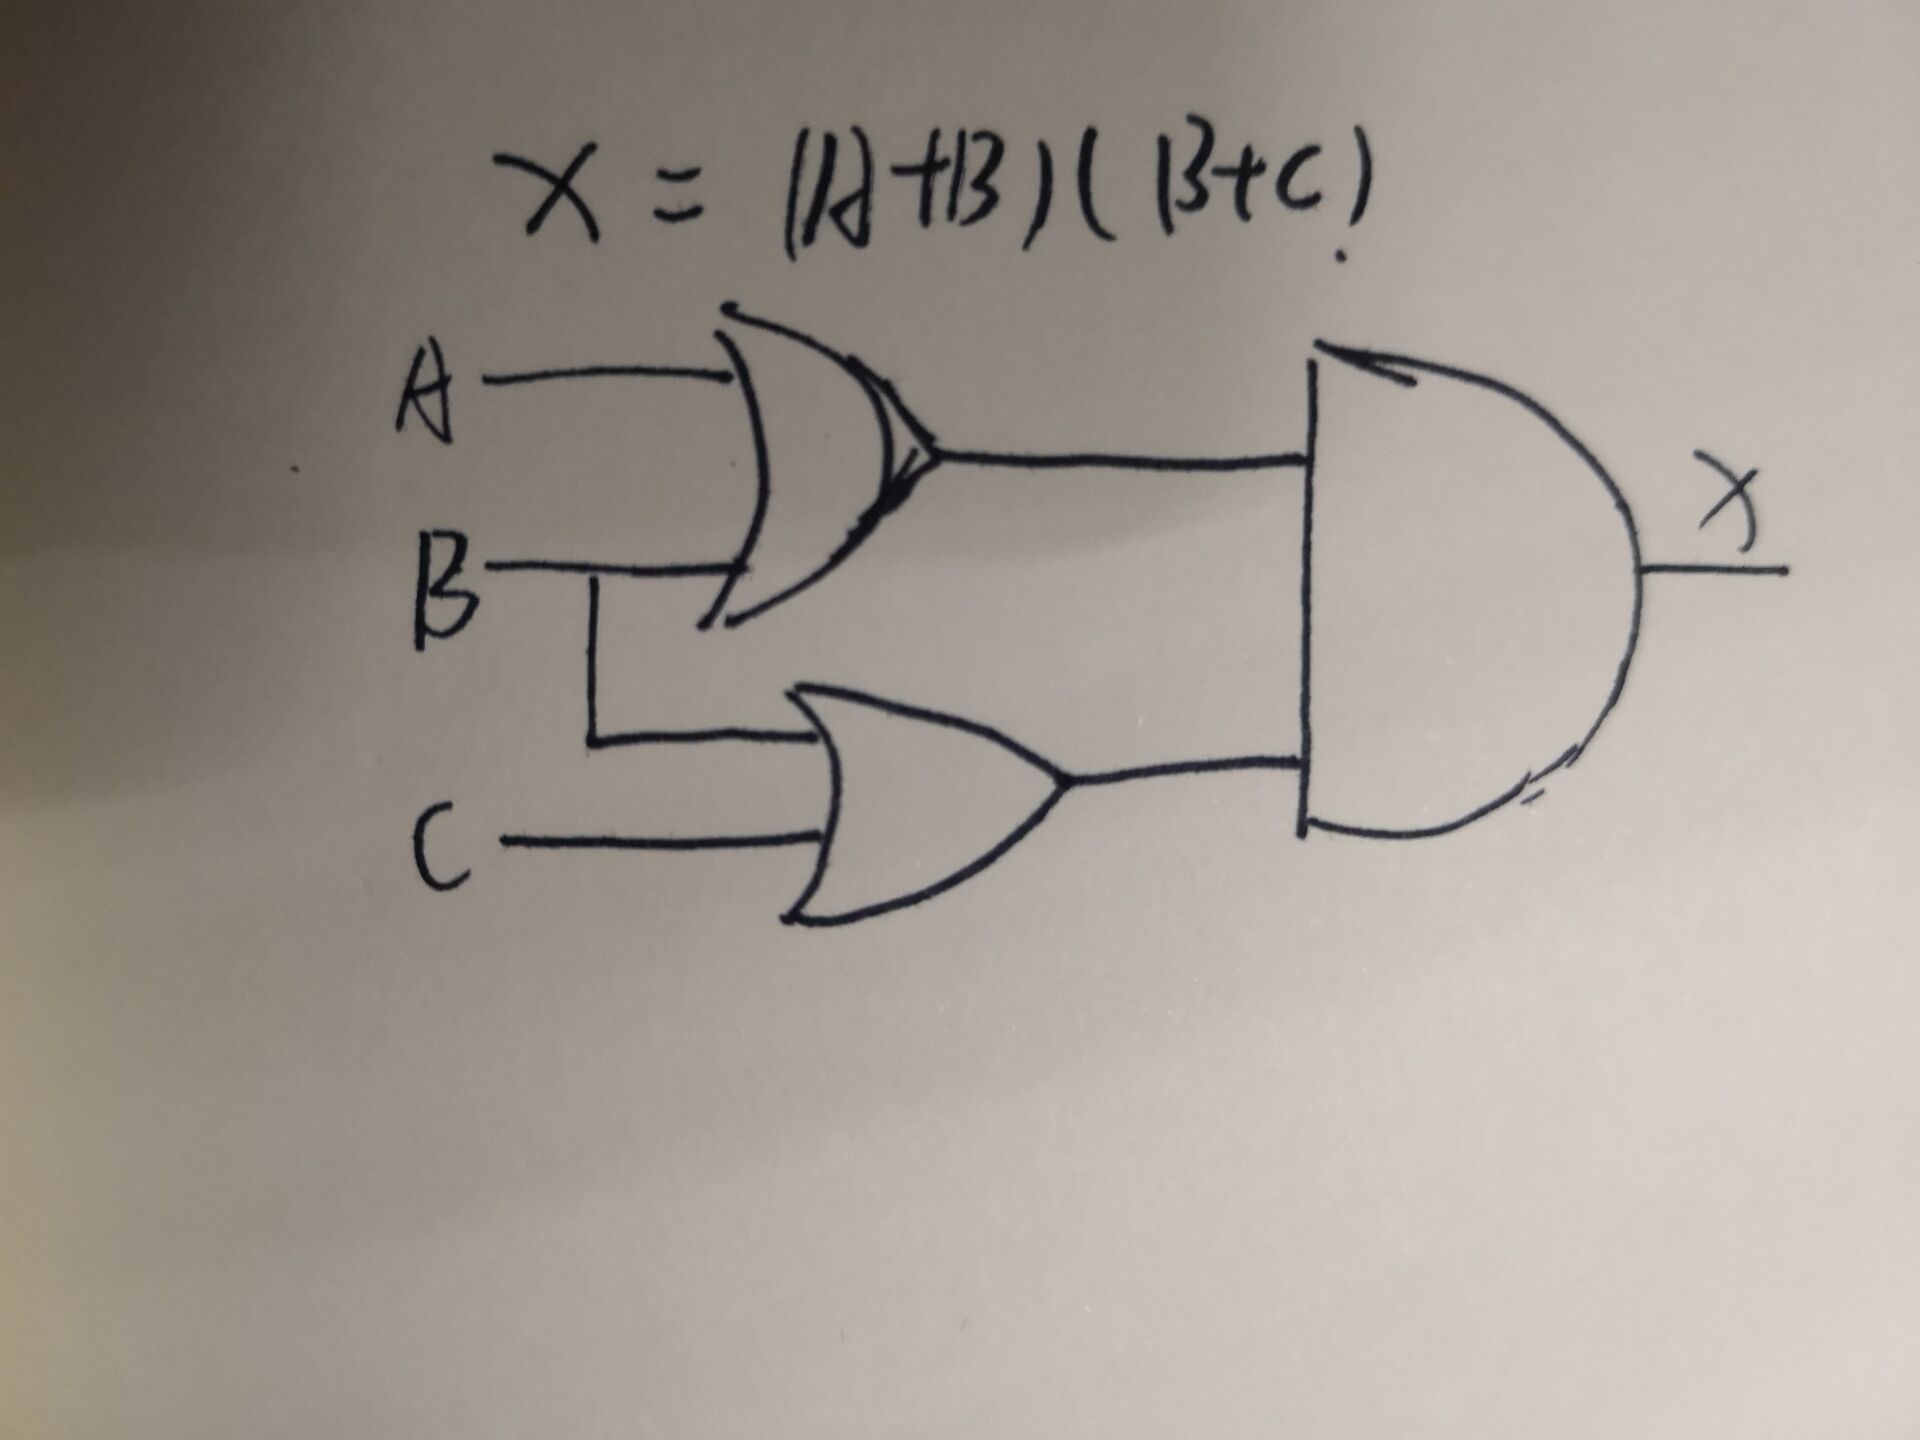 X = (A+B)(B+C)
A
B
C
X